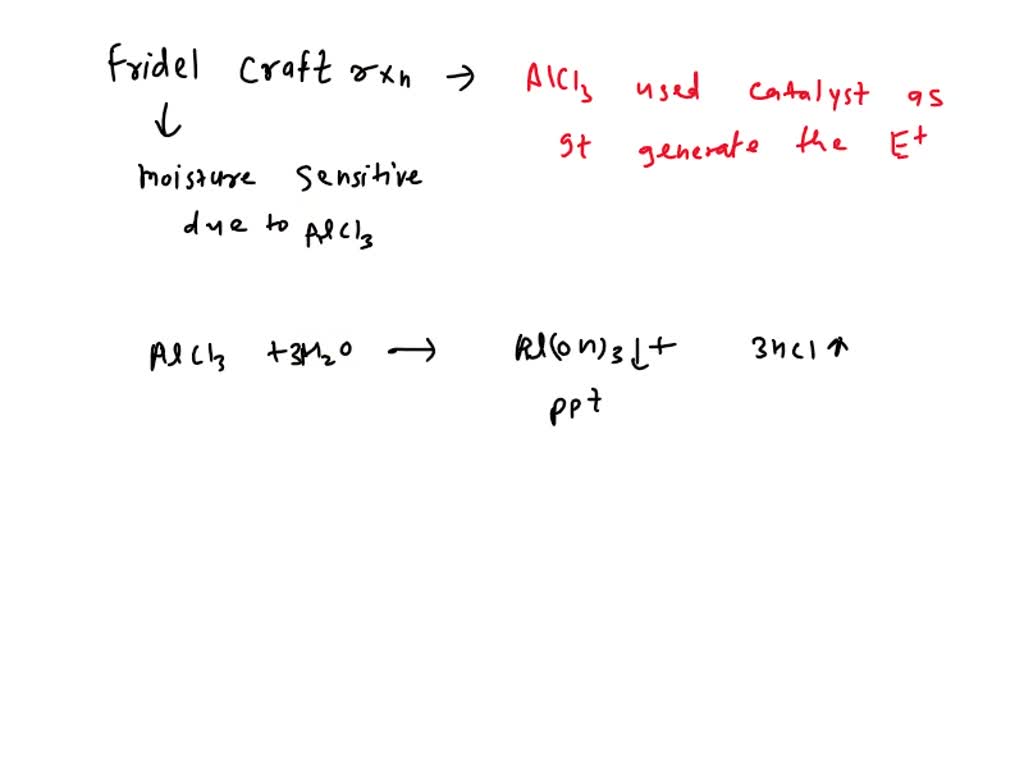 Fridel Craft rxn → AlCl3 used catalyst as
↓ It generate the E+
moisture sensitive
due to AlCl3
AlCl3 + 3H2O → Al(OH)3↓ + 3HCl↑
ppt